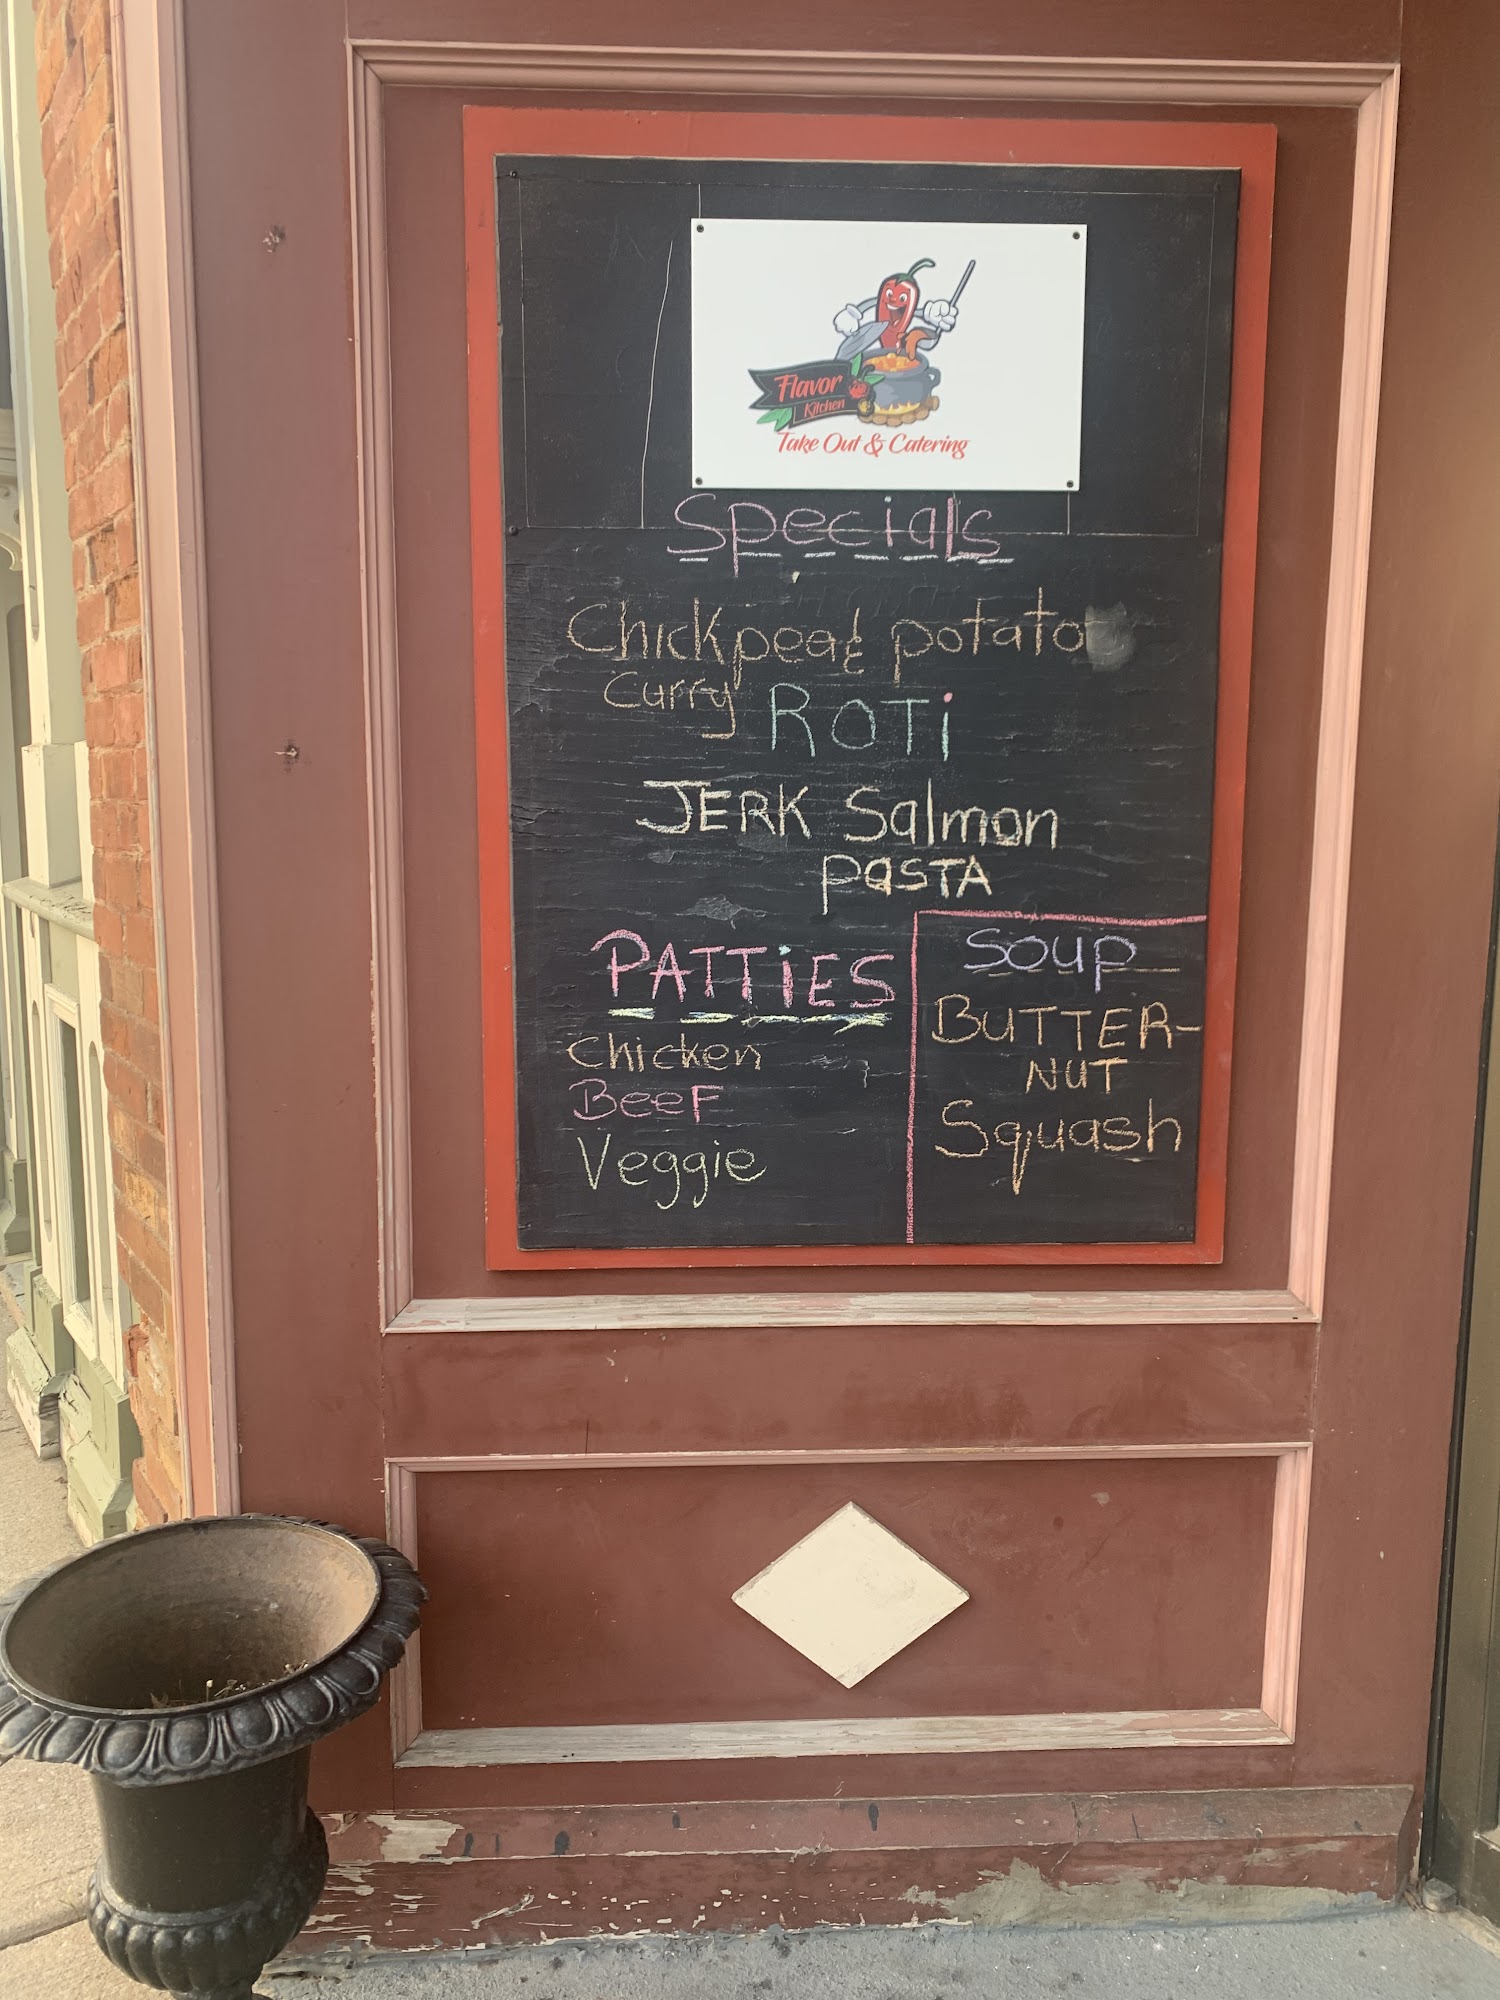 Flavor
Kitchen
Take Out & Catering
Specials
Chickpea & potato
Curry ROTi
JERK Salmon
PASTA
PATTiES
Chicken
BeeF
Veggie
Soup
BUTTER-
NUT
Squash